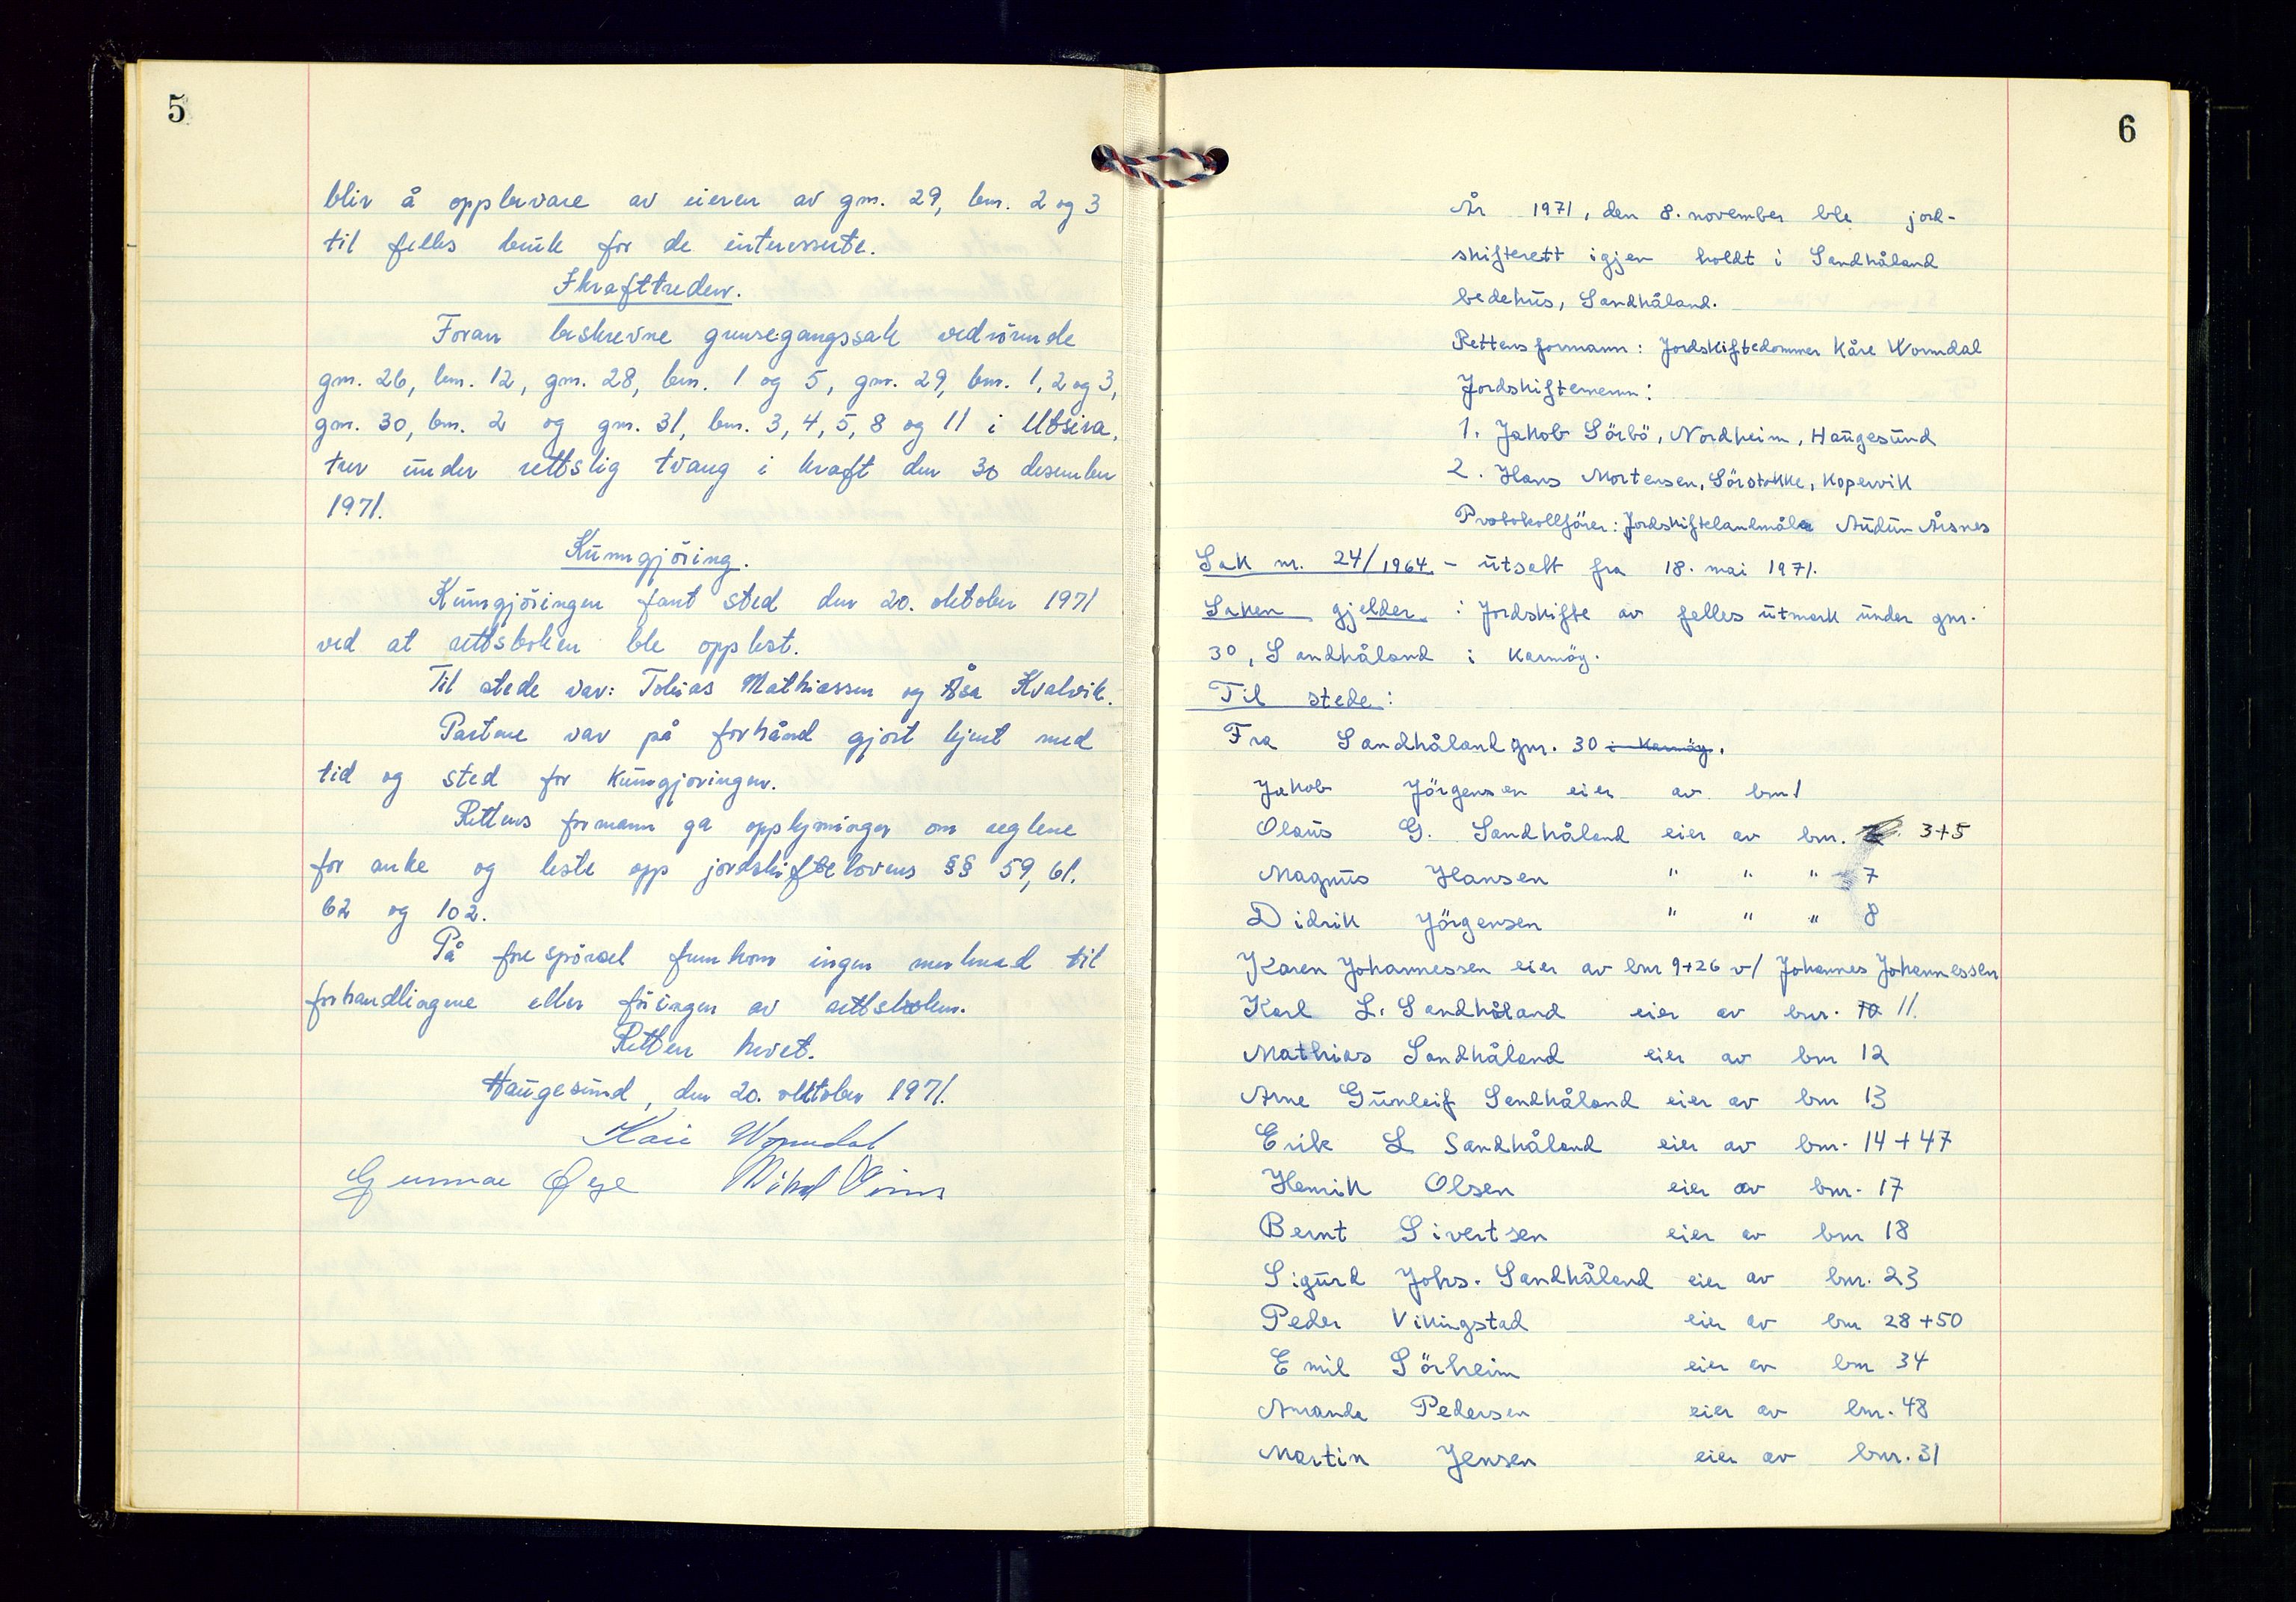 5
bliv å oppbevare av eieren av gnr. 29, bnr. 2 og 3
til felles bruk for de interesserte.
Ikrafttreden.
Foran beskrevne grensegangssak vedrørende
gnr. 26, bnr. 12, gnr. 28, bnr. 1 og 5, gnr. 29, bnr. 1, 2 og 3,
gnr. 30, bnr. 2 og gnr. 31, bnr. 3, 4, 5, 8 og 11 i Utsira,
trer under rettslig tvang i kraft den 30 desember
1971.
Kunngjöring.
Kunngjöringen fant sted den 20. oktober 1971
ved at rettsboken ble opplest.
Til stede var: Tobias Mathiassen og Åsa Kvalvik.
Partene var på forhånd gjort kjent med
tid og sted for kunngjoringen.
Rettens formann ga opplysninger om reglene
for anke og leste opp jordskiftelovens §§ 59, 61.
62 og 102.
På forespörsel fremkom ingen merknad til
forhandlingene eller föringen av rettsboken.
Retten hevet.
Haugesund, den 20. oktober 1971.
Kåre Wormdal
Gunnar Øye Mikal
6
År 1971, den 8. november ble jord-
skifterett igjen holdt i Sandhåland
bedehus, Sandhåland.
Rettens formann: Jordskiftedommer Kåre Wormdal
Jordskiftemenn:
1. Jakob Sörbö, Nordheim, Haugesund
2. Hans Mortensen, Sörstokke, Kopervik
Protokollförer: Jordskiftelandmåler Audun Årsnes
Sak nr. 24/1964 - utsatt fra 18. mai 1971.
Saken gjelder: Jordskifte av felles utmark under gnr.
30, Sandhåland i Karmöy.
Til stede:
Fra Sandhåland gnr. 30 i Karmöy.
Jakob Jörgensen eier av bnr 1
Olaus G. Sandhåland eier av bnr. 3+5
Magnus Hansen " " " 7
Didrik Jörgensen " " " 8
Karen Johannessen eier av bnr 9+26 v/ Johannes Johannessen
Karl L. Sandhåland eier av bnr. 10 11.
Mathias Sandhåland eier av bnr 12
Arne Gunleif Sandhåland eier av bnr 13
Erik L Sandhåland eier av bnr. 14+47
Henrik Olsen eier av bnr. 17
Bernt Sivertsen eier av bnr 18
Sigurd Johs. Sandhåland eier av bnr. 23
Peder Vikingstad eier av bnr 28+50
Emil Sörheim eier av bnr 34
Amanda Pedersen eier av bnr. 48
Martin Jensen eier av bnr. 31